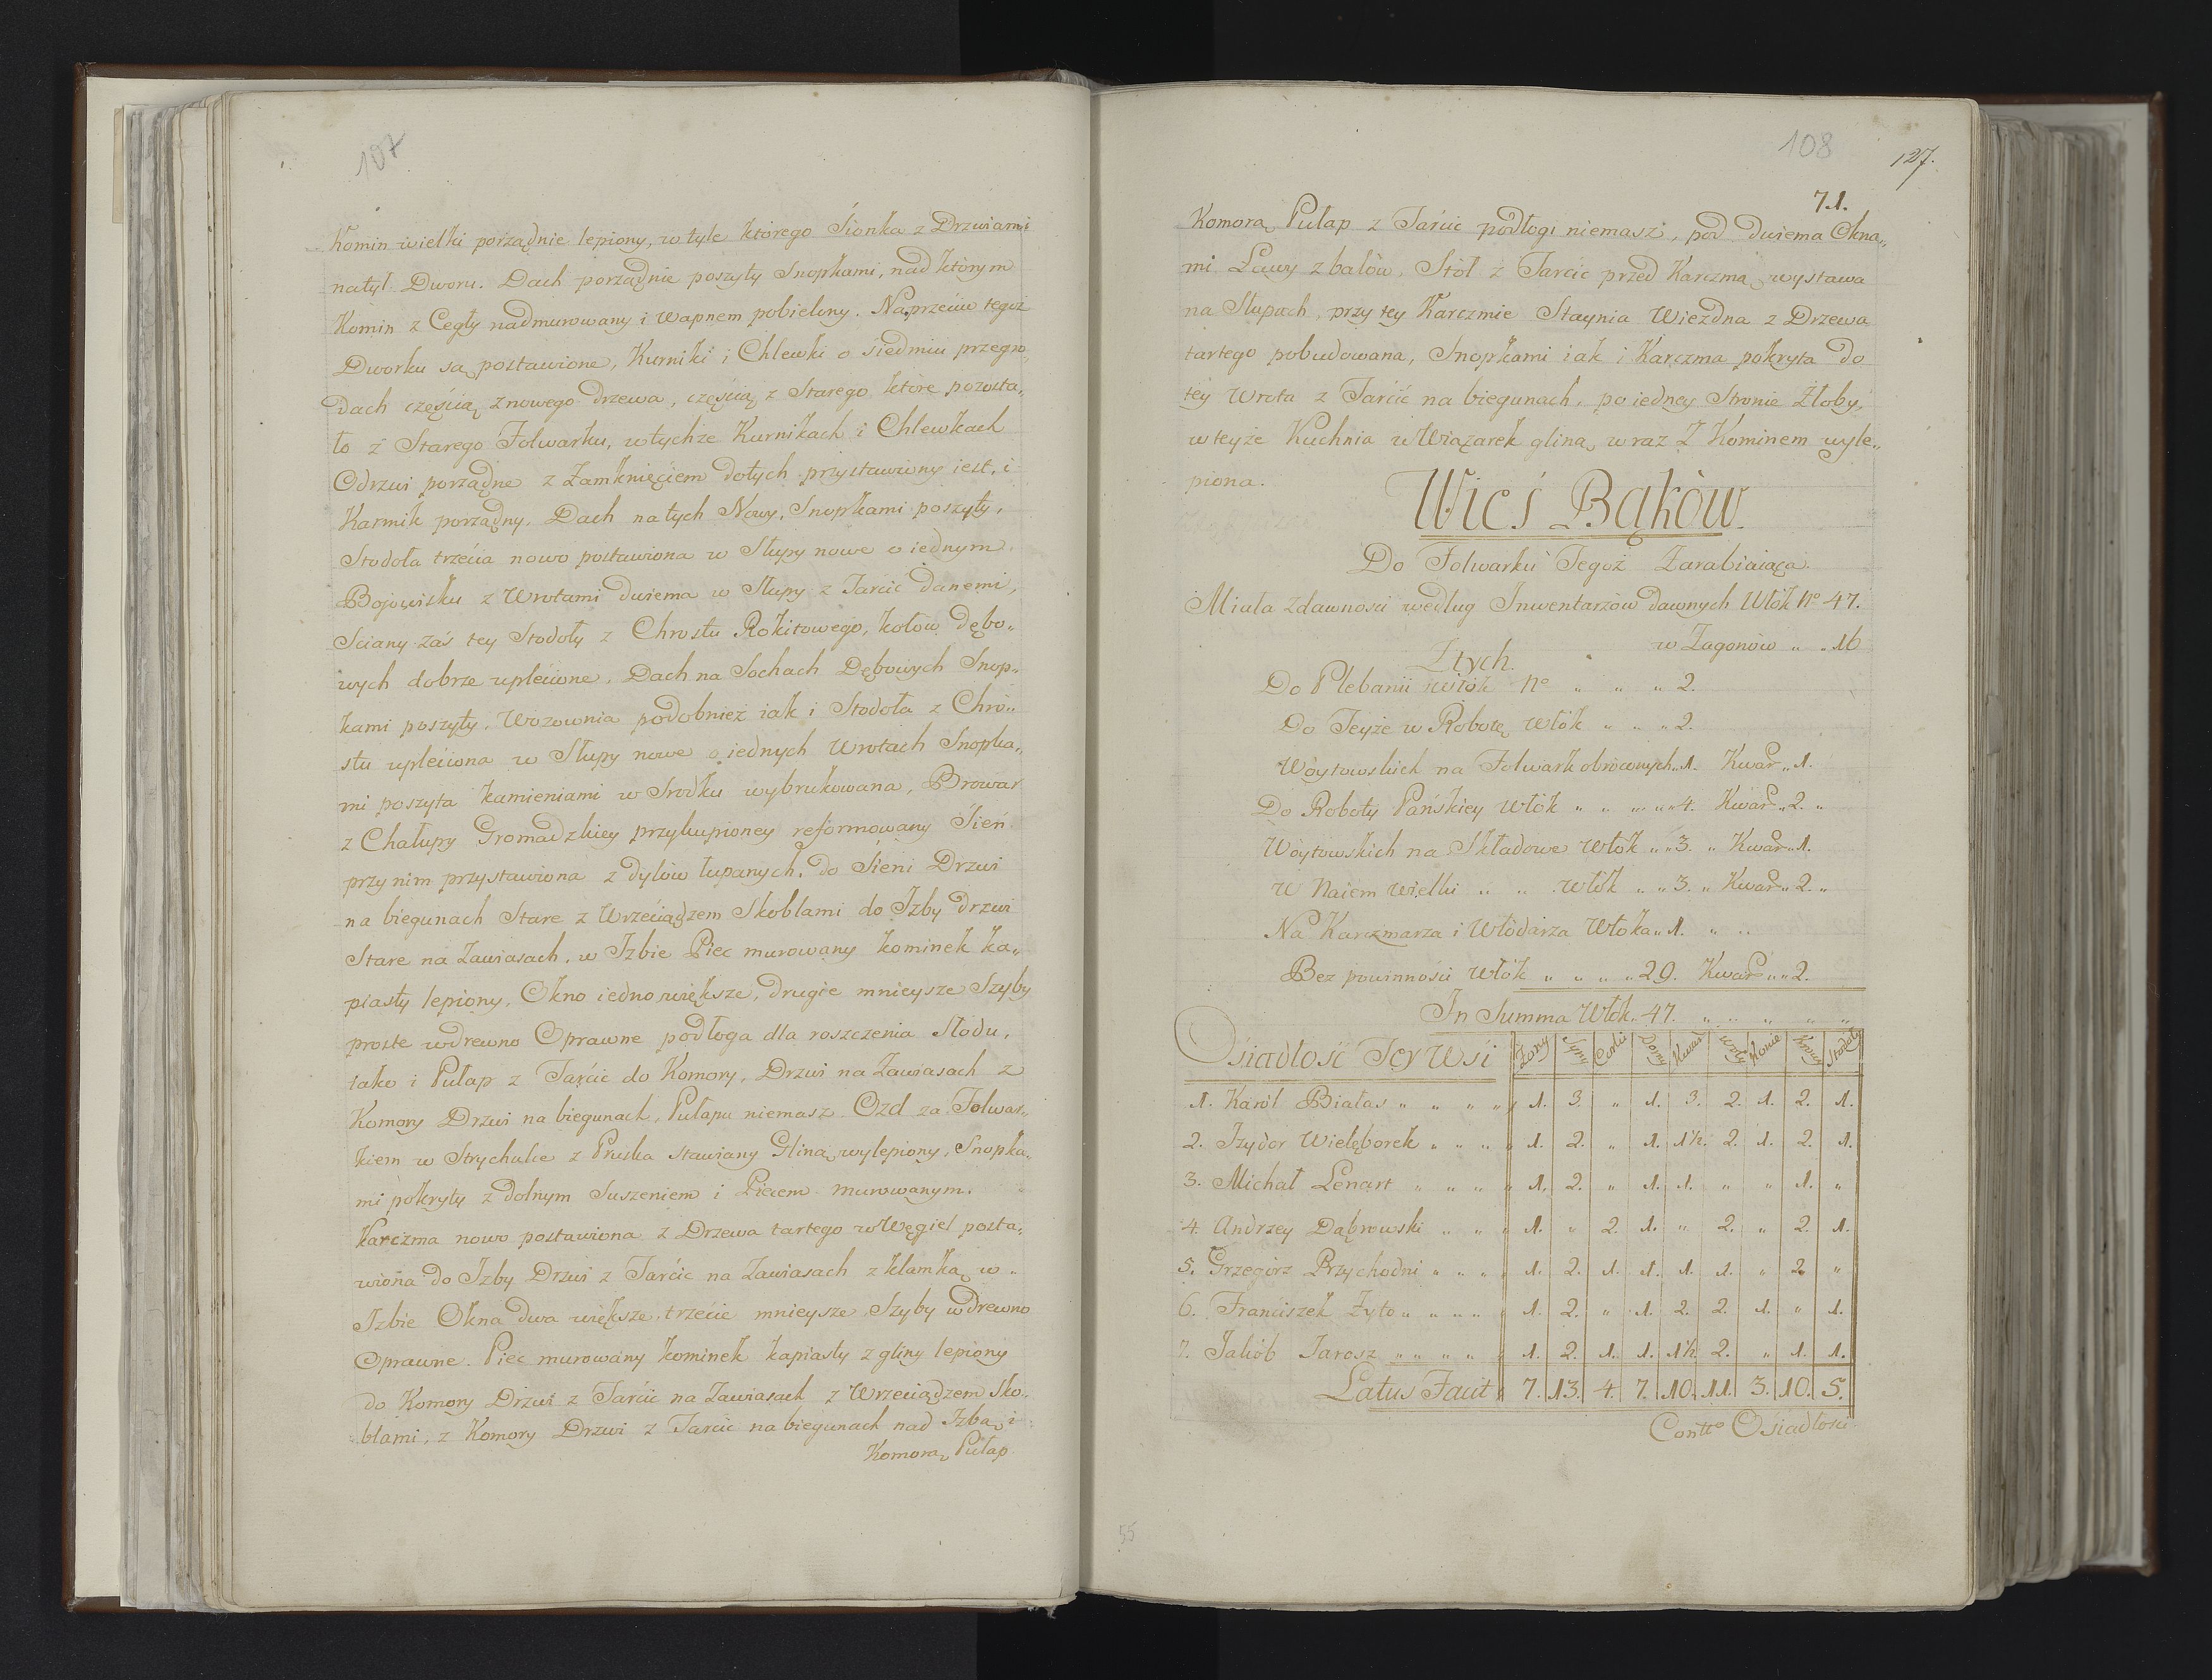 107
Komin wielki porządnie lepiony, w tyle ktorego Sionka z Drzwiami
natył Dworu. Dach porządnie poszyty Snopkami, nad ktòrym
Komin z Cegły nadmurowany i wapnem pobielony. Naprzeciw tegoż
Dworku są postawione, Kurniki i Chlewki o siedmiu przegro„
dach częścią z nowego drzewa, częścią z Starego ktore pozosta„
ło z Starego Folwarku, w tychże Kurnikach i Chlewkach
Odrzwi porządne z Zamknięciem do tych przystawiony iest, i
Karmik porządny. Dach na tych Nowy, Snopkami poszyty,
Stodoła trzecia nowo postawiona w Słupy nowe o iednym
Bojowisku z Wrotami dwiema w Słupy z Tarcic danemi,
Sciany zaś tey Stodoły z Chrostu Rokitowego, kołow dębo„
wych dobrze uplecione, Dach na Sochach Dębowych Snop„
kami poszyty, Wozownia podobnież iak i Stodoła z Chro„
stu upleciona w Słupy nowe o iednych Wrotach Snopka„
mi poszyta kamieniami w Srodku wybrukowana, Browar
z Chałupy Gromadzkiey przykupioney reformowany Sień
przy nim przystawiona z dylow łupanych, do Sieni Drzwi
na biegunach Stare z Wrzeciądzem Skoblami do Izby drzwi
Stare na Zawiasach, w Izbie Piec murowany kominek ka„
piasty lepiony, Okno iedno większe, drugie mnieysze Szyby
proste w drewno Oprawne podłoga dla roszczenia Słodu,
tako i Pułap z Tarcic do Komory, Drzwi na Zawiasach z
Komory Drzwi na biegunach, Pułapu niemasz Ozd za Folwar„
kiem w Strychulce z Pruska stawiany Gliną wylepiony, Snopka„
mi pokryty z dolnym Suszeniem i Piecem murowanym.
Karczma nowo postawiona z Drzewa tartego w Węgieł posta„
wiona do Izby Drzwi z Tarcic na Zawiasach z klamką w
Izbie Okna dwa większe, trzecie mnieysze, Szyby w drewno
Oprawne. Piec murowany kominek kapiasty z gliny lepiony
do Komory Drzwi z Tarcic na Zawiasach z Wrzeciądzem Sko„
blami, z Komory Drzwi z Tarcic na biegunach nad Izbą i
Komorą Pułap
108
127.
71.
Komorą Pułap z Tarcic podłogi niemasz, pod dwiema Okna„
mi Ławy z balòw, Stòł z Tarcic przed Karczmą wystawa
na Słupach, przy tey Karczmie Staynia Wiezdna z Drzewa
tartego pobudowana, Snopkami iak i Karczma pokryta do
tey Wrota z Tarcic na biegunach, po iedney Stronie Żłoby,
w teyże Kuchnia w Wiązarek gliną wraz Z Kominem wyle„
piona.
Wieś Bąkòw
Do Folwarku Tegoż Zarabiaiąca.
Miała Zdawności według Inwentarzòw dawnych Włòk No 47.
w Zagonòw „ „ 16
Ztych.
Do Plebanii włòk No „ „ „ 2.
Do Teyże w Robotę Włòk „ „ „ 2.
Wòytowskich na Folwark obròconych „ 1. Kwar „ 1.
Do Roboty Pańskiey Włòk „ „ „ „ 4. Kwar „ 2. „
Wòytowskich na Składowe Włòk „ „ 3. „ Kwar „ 1.
W Naiem Wielki „ „ Włòk „ „ 3. „ Kwar „ 2. „
Na Karczmarza i Włòdarza Włoka „ 1. „ „
Bez powinności Włòk „ „ „ „ 29. Kwar „ „ 2.
In Summa Włòk. 47. „ „ „ „ „
Osiadłość Tey Wsi Zony Syny Corki Domy Kwar Woły Konie Krowy Stodoły
1. Karòl Białas „ „ „ „ 1. 3. „ 1. 3. 2. 1. 2. 1.
2. Izydor Wielęborek „ „ „ „ 1. 2. „ 1. 1½. 2. 1. 2. 1.
3. Michał Lenart „ „ „ „ 1. 2. „ 1. 1. „ „ 1. „
4. Andrzey Dąbrowski „ „ „ 1. „ 2. 1. „ 2. „ 2. 1.
5. Grzegòrz Przychodni „ „ „ „ 1. 2. 1. 1. 1. 1. „ 2. „
6. Franciszek Zyto „ „ „ „ „ 1. 2. „ 1. 2. 2. 1. „ 1.
7. Jakòb Jarosz „ „ „ „ „ 1. 2. 1. 1. 1½. 2. „ 1. 1.
Latus Facit 7. 13. 4. 7. 10. 11. 3. 10. 5.
Contto Osiadłości
55